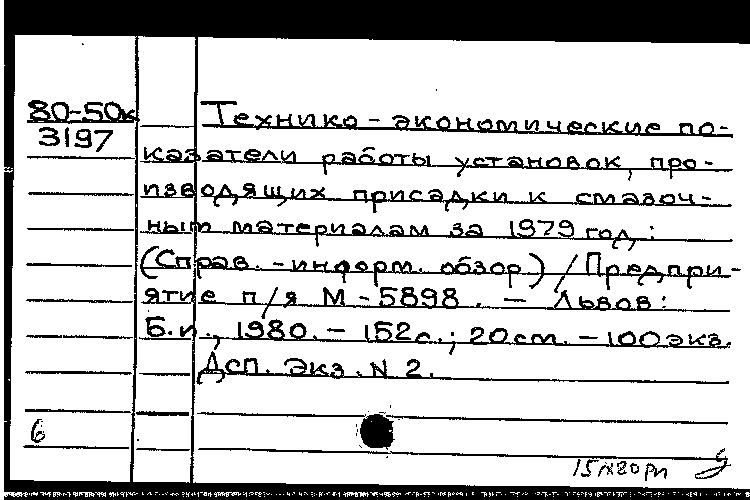 80-50к
3197
Технико-экономические по-
казатели работы установок, про-
изводящих присадки к смазоч-
ным материалам за 1979 год:
(Справ.-информ. обзор) / Предпри-
ятие п/я М-5898. - Львов:
Б.и., 1980. - 152с.; 20см. - 100экз.
Дсп. Экз. N 2.
6